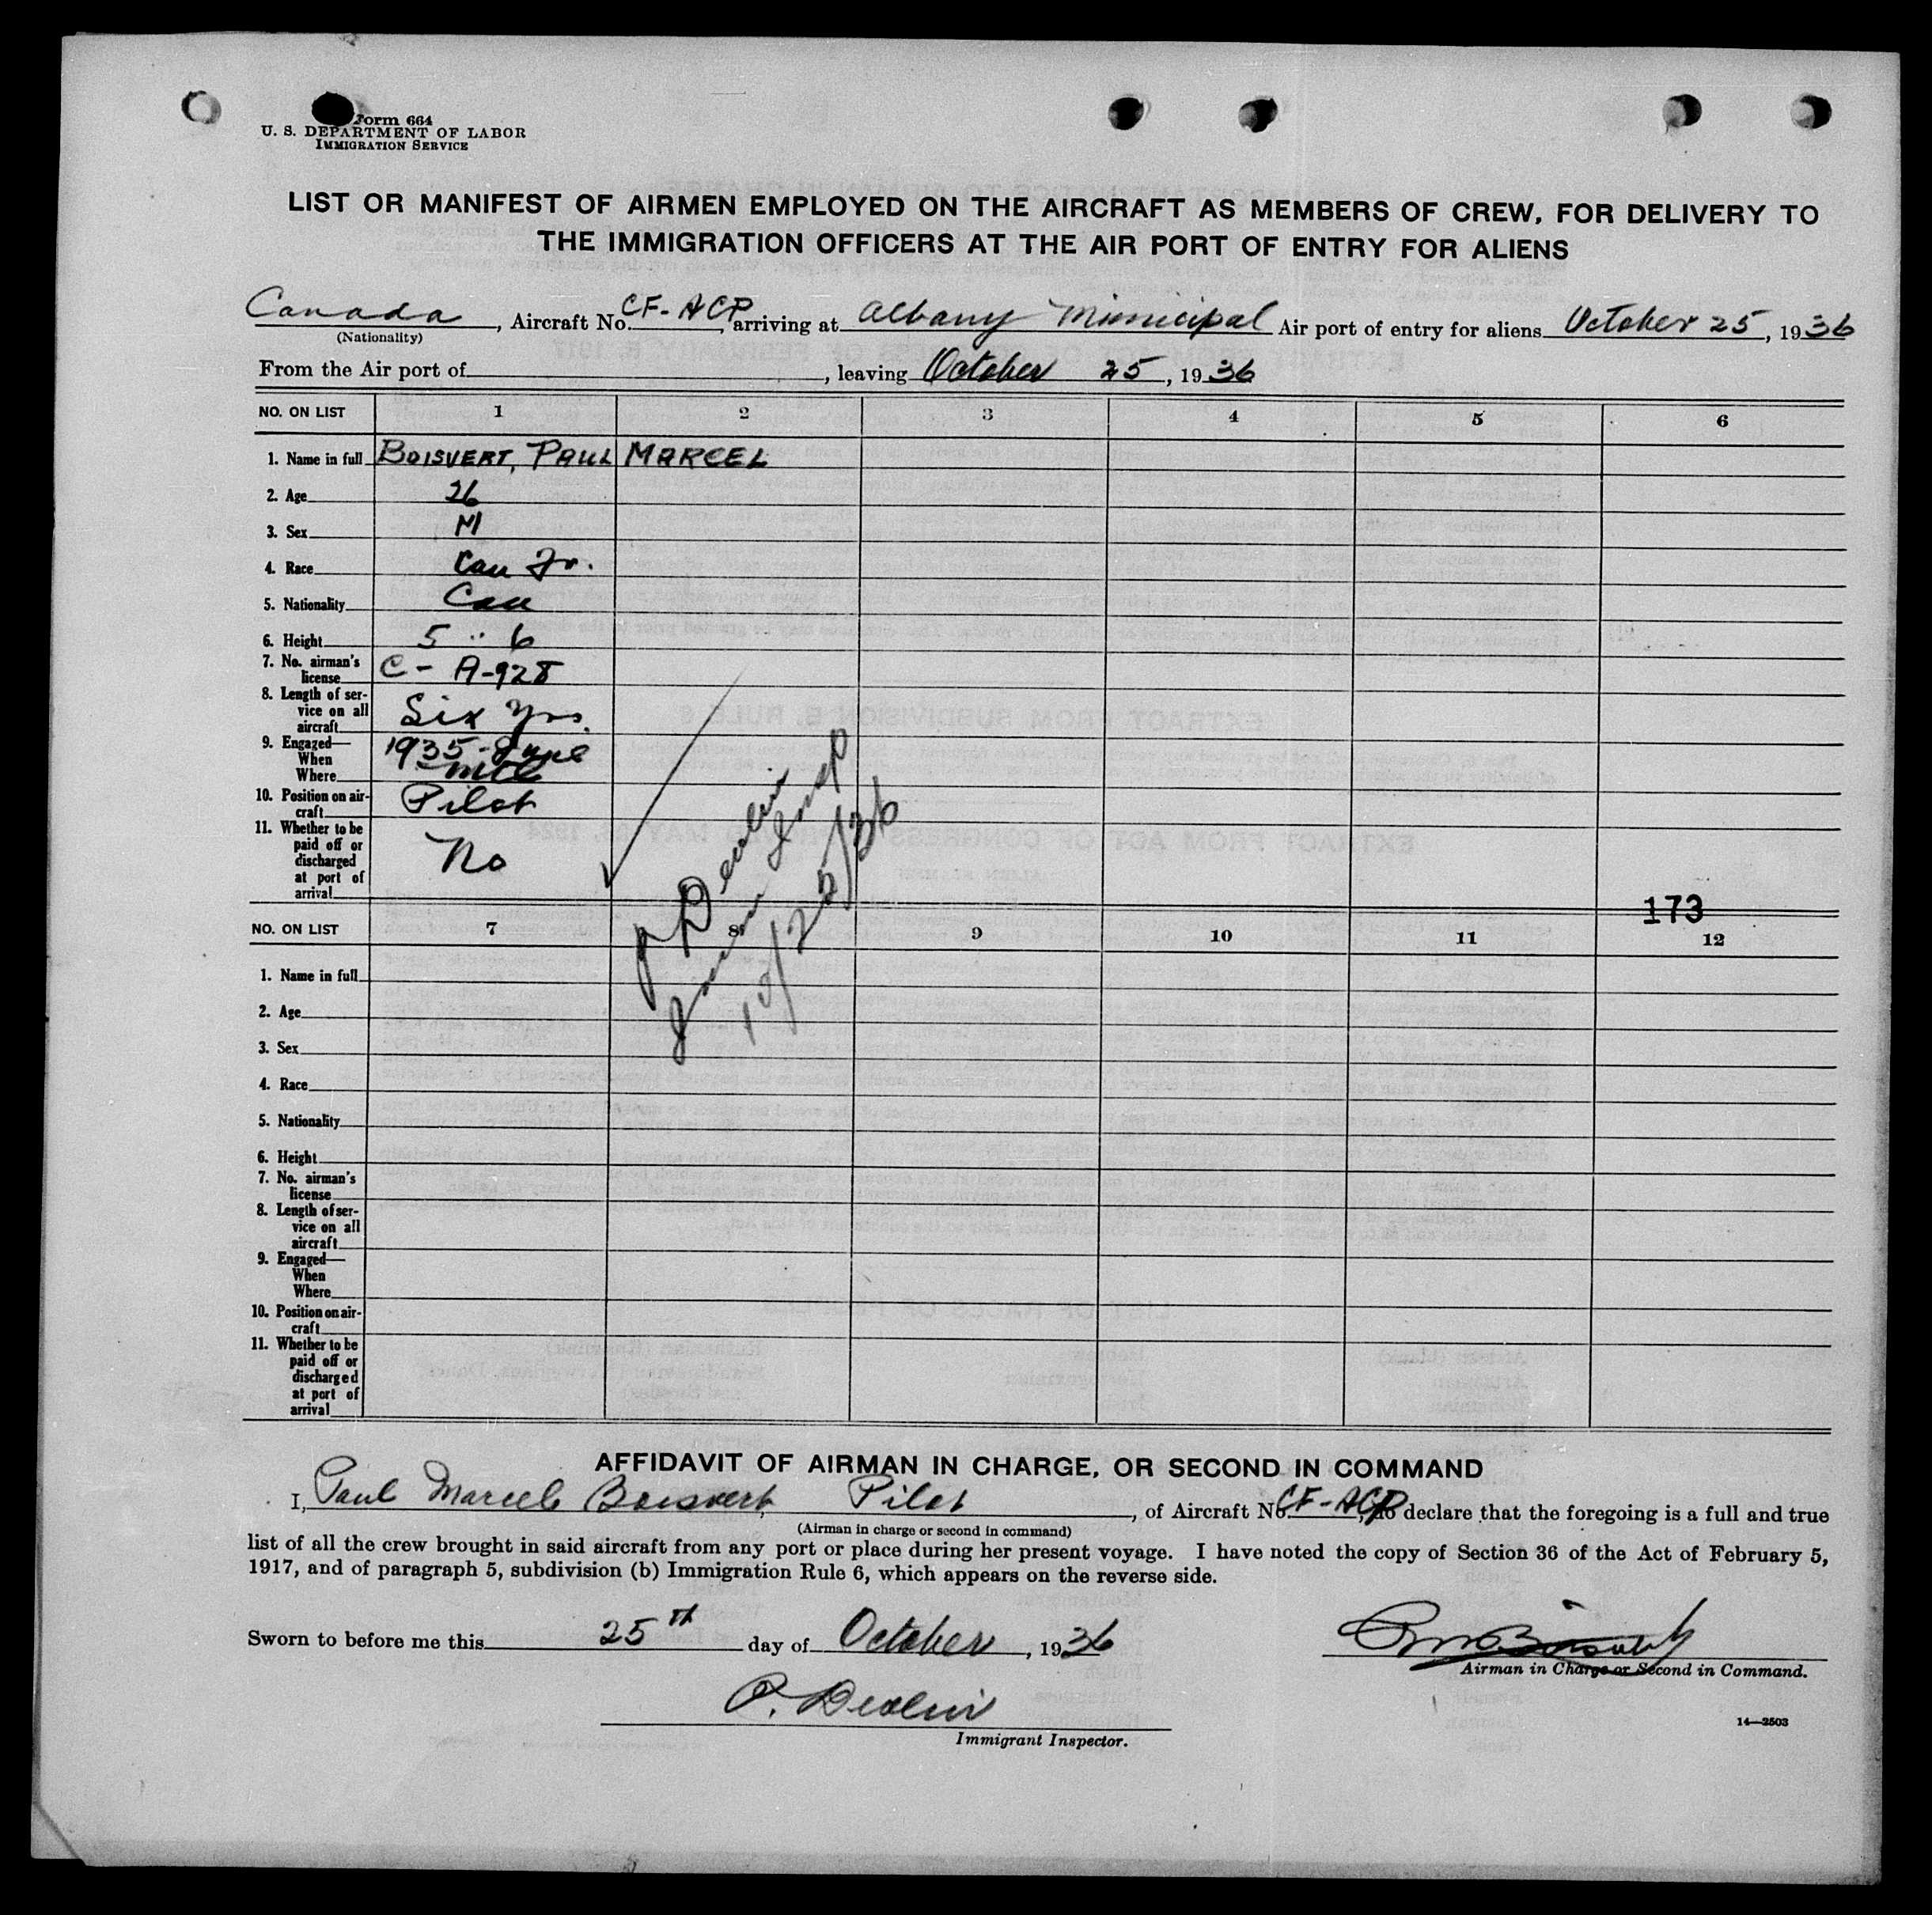 Form 664
U. S. DEPARTMENT OF LABOR
IMMIGRATION SERVICE
LIST OR MANIFEST OF AIRMEN EMPLOYED ON THE AIRCRAFT AS MEMBERS OF CREW, FOR DELIVERY TO
THE IMMIGRATION OFFICERS AT THE AIR PORT OF ENTRY FOR ALIENS
Canada, Aircraft No. CF-ACP, arriving at Albany Municipal Air port of entry for aliens October 25, 1936
(Nationality)
From the Air port of , leaving October 25, 1936
NO. ON LIST 1 2 3 4 5 6
1. Name in full BOISVERT, PAUL MARCEL
2. Age 26
3. Sex M
4. Race Can Fr.
5. Nationality Can
6. Height 5 " 6
7. No. airman's
license C - A-928
8. Length of ser-
vice on all
aircraft Six Yrs.
9. Engaged—
When 1935-June
Where Mtl
10. Position on air-
craft Pilot
11. Whether to be
paid off or
discharged
at port of
arrival No
P Devlin
Immn Insp
10/25/36
173
NO. ON LIST 7 8 9 10 11 12
1. Name in full
2. Age
3. Sex
4. Race
5. Nationality
6. Height
7. No. airman's
license
8. Length of ser-
vice on all
aircraft
9. Engaged—
When
Where
10. Position on air-
craft
11. Whether to be
paid off or
discharged
at port of
arrival
AFFIDAVIT OF AIRMAN IN CHARGE, OR SECOND IN COMMAND
I, Paul Marcel Boisvert, Pilot, of Aircraft No. CF-ACP, do declare that the foregoing is a full and true
(Airman in charge or second in command)
list of all the crew brought in said aircraft from any port or place during her present voyage. I have noted the copy of Section 36 of the Act of February 5,
1917, and of paragraph 5, subdivision (b) Immigration Rule 6, which appears on the reverse side.
Sworn to before me this 25th day of October, 1936
PM Boisvert
Airman in Charge or Second in Command.
P. Devlin
Immigrant Inspector.
14—2503